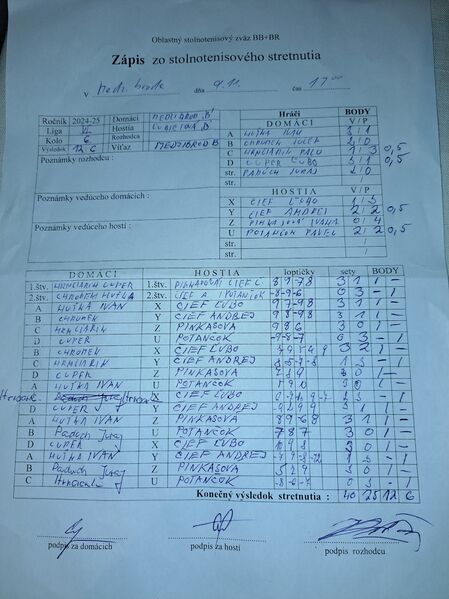 Oblastný stolnotenisový zväz BB+BR
Zápis zo stolnotenisového stretnutia
V Medz. brode dňa 9.11. čas 17 00
Ročník 2024-25 Domáci MEDZIBROD B
Liga VI. Hostia ĽUBIETOVÁ B
Kolo 6 Rozhodca
Výsledok 12:6 Víťaz MEDZIBROD B
Poznámky rozhodcu :
Poznámky vedúceho domácich :
Poznámky vedúceho hostí :
Hráči BODY
DOMÁCI V/P
A HUTKA IVAN 3/1
B CHROMEK JOZEF 2/0
C HRNČIARIK PAĽO 1/3 0,5
D CUPER ĽUBO 3/1 0,5
str. PADÚCH JURAJ 2/0
HOSTIA V/P
X CIEF ĽUBO 1/3
Y CIEF ANDREJ 2/2 0,5
Z PINKASOVÁ IVANA 0/4
U POTANČOK PAVEL 2/2 0,5
str.
str.
DOMÁCI HOSTIA loptičky sety BODY
1.štv. HRNČIARIK CUPER 1.štv. PINKASOVÁ CIEF Ľ. 3 1 1 -
2.štv. CHROMEK HUTKA 2.štv. CIEF A. POTANČOK -8-9-6 0 3 - 1
A HUTKA IVAN X CIEF ĽUBO 3 1 1 -
B CHROMEK Y CIEF ANDREJ 3 1 1 -
C HRNČIARIK Z PINKASOVÁ 9 8 6 3 0 1 -
D CUPER U POTANČOK -9-8-7 0 3 - 1
B CHROMEK X CIEF ĽUBO 3 2 1 -
C HRNČIARIK Y CIEF ANDREJ 1 3 - 1
D CUPER Z PINKASOVÁ 3 0 1 -
A HUTKA IVAN U POTANČOK 3 0 1 -
C X CIEF ĽUBO - 1
D CUPER Y CIEF ANDREJ 3 1 1 -
A HUTKA IVAN Z PINKASOVÁ 8 9 6 8 3 1 1 -
B Paduch Juraj U POTANČOK 7 8 7 3 0 1 -
D CUPER X CIEF ĽUBO 3 0 1 -
A HUTKA IVAN Y CIEF ANDREJ 1 3 - 1
B Paduch Juraj Z PINKASOVÁ 3 0 1 -
C Hrnciarik U POTANČOK -8-6-7 0 3 - 1
Konečný výsledok stretnutia : 40 25 12 6
podpis za domácich podpis za hostí podpis rozhodcu